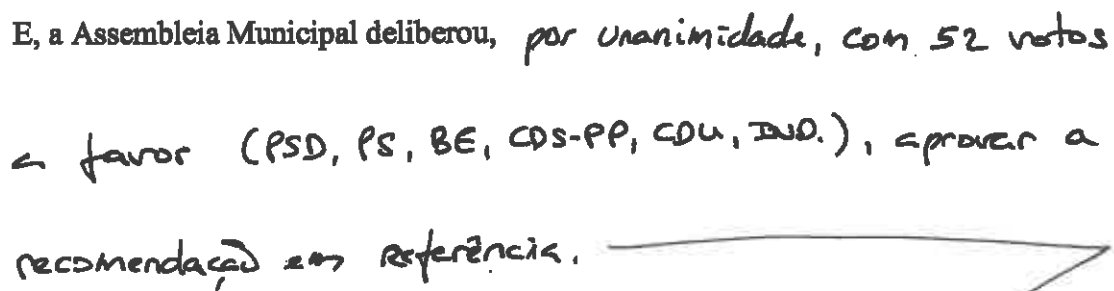 E, a Assembleia Municipal deliberou, por unanimidade, com 52 votos
a favor (PSD, PS, BE, CDS-PP, CDU, IND.), aprovar a
recomendação em referência.